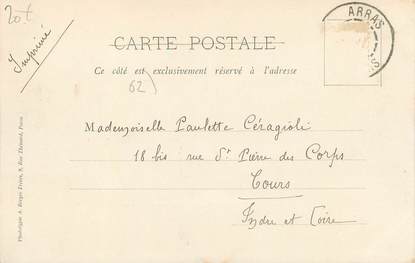 20t
Imprimé
ARRAS
CARTE POSTALE
Ce côté est exclusivement réservé à l'adresse
62)
Mademoiselle Paulette Céragioli
18 bis rue St Pierre des Corps
Tours
Indre et Loire
Phototypie A. Bergeret Frères, 8, Rue Thénard, Paris